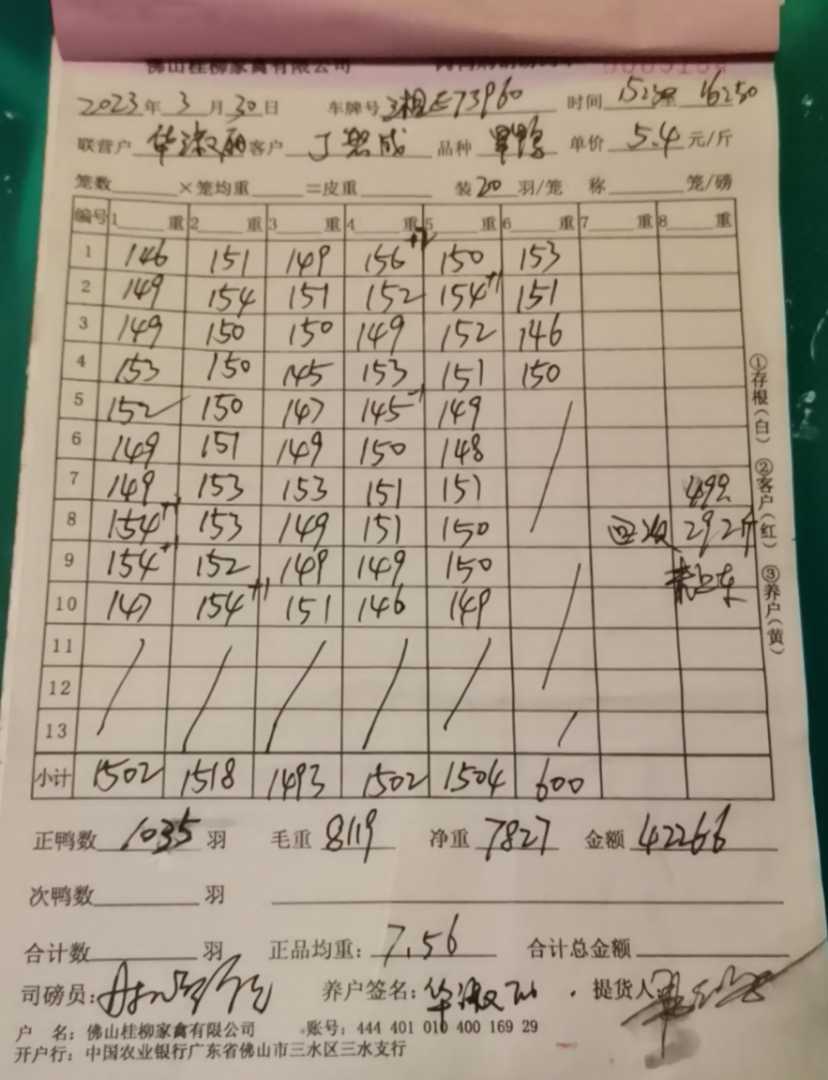 佛山桂柳家禽有限公司
2023年3月30日 车牌号 73960 时间 15:20至 16:50
联营户 华淑丽 客户 丁 成 品种 单价 5.4 元/斤
笼数 ×笼均重 =皮重 装 20 羽/笼 称 笼/磅
编号 1 重 2 重 3 重 4 重 5 重 6 重 7 重 8 重
1 146 151 149 156+2 150 153
2 149 154 151 152 154+1 151
3 149 150 150 149 152 146
4 153 150 145 153 151 150
5 152 150 147 145-1 149
6 149 151 149 150 148
7 149 153 153 151 151 49只
8 154+1 153 149 151 150 292斤
9 154+1 152 149 149 150
10 147 154+1 151 146 149
11
12
13
小计 1502 1518 1493 1502 1504 600
正鸭数 1035 羽 毛重 8119 净重 7827 金额 42266
次鸭数 羽
合计数 羽 正品均重: 7.56 合计总金额
司磅员: 养户签名: 华淑丽 . 提货人
户 名: 佛山桂柳家禽有限公司 账号: 444 401 010 400 169 29
开户行: 中国农业银行广东省佛山市三水区三水支行
①存根(白) ②客户(红) ③养户(黄)